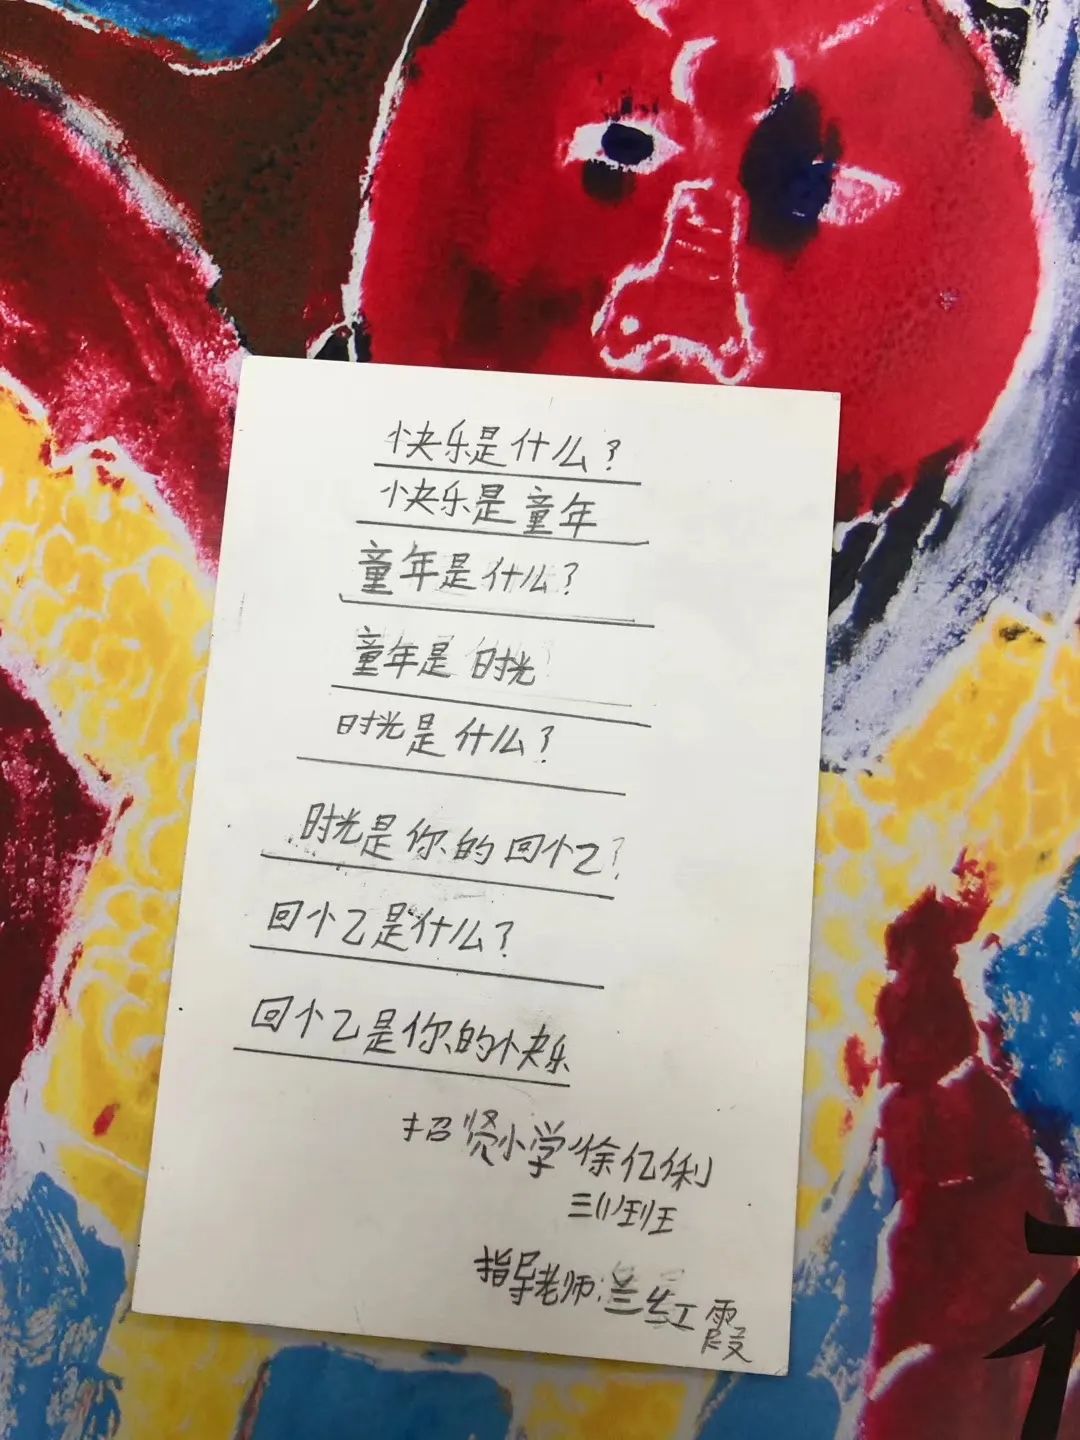 快乐是什么？
快乐是童年
童年是什么？
童年是时光
时光是什么？
时光是你的回忆？
回忆是什么？
回忆是你的快乐
招贤小学徐亿俐
三(1)班
指导老师：兰红霞